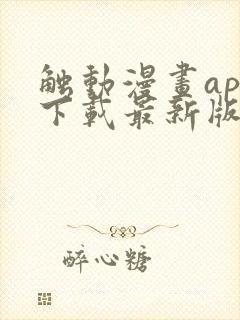 触動漫畫ap
下載最新版
醉心糖